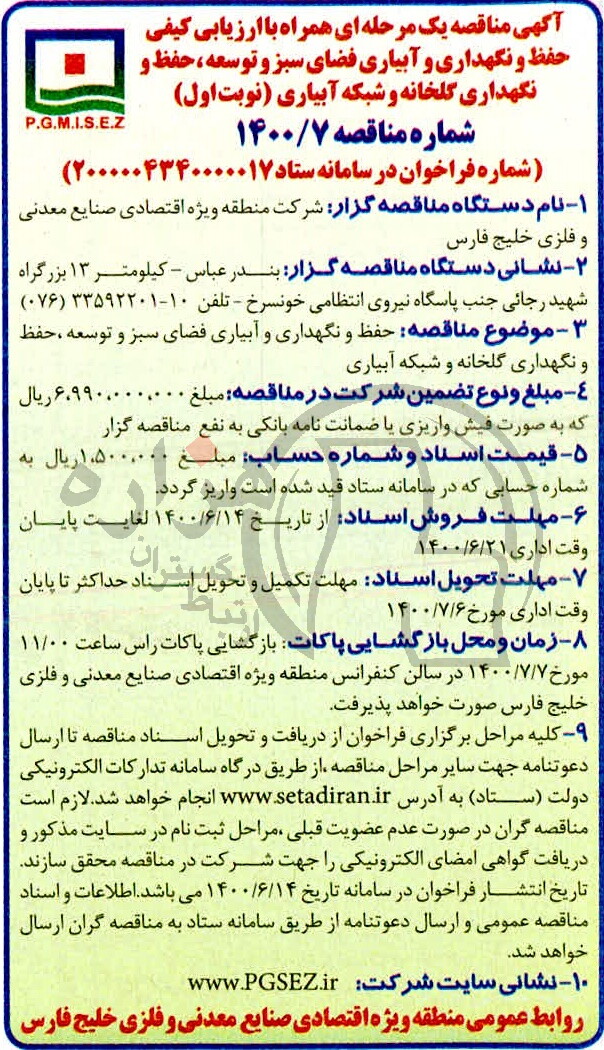 آگهی مناقصه یک مرحله ای همراه با ارزیابی کیفی
حفظ و نگهداری و آبیاری فضای سبز و توسعه ،حفظ و
نگهداری گلخانه و شبکه آبیاری (نوبت اول)
P.G.M.I.S.E.Z
شماره مناقصه ۱۴۰۰/۷
(شماره فراخوان در سامانه ستاد ۲۰۰۰۰۰۴۳۴۰۰۰۰۰۱۷)
۱-نام دستگاه مناقصه گزار: شرکت منطقه ویژه اقتصادی صنایع معدنی
و فلزی خلیج فارس
۲-نشانی دستگاه مناقصه گزار: بندر عباس - کیلومتر ۱۳ بزرگراه
شهید رجائی جنب پاسگاه نیروی انتظامی خونسرخ - تلفن ۱۰-۳۳۵۹۲۲۰۱ (۰۷۶)
۳-موضوع مناقصه: حفظ و نگهداری و آبیاری فضای سبز و توسعه ،حفظ
و نگهداری گلخانه و شبکه آبیاری
۴-مبلغ ونوع تضمین شرکت در مناقصه:مبلغ ۶،۹۹۰،۰۰۰،۰۰۰ ریال
که به صورت فیش واریزی یا ضمانت نامه بانکی به نفع مناقصه گزار
۵-قیمت اسناد و شماره حساب: مبلغ ۱،۵۰۰،۰۰۰ریال به
شماره حسابی که در سامانه ستاد قید شده است واریز گردد.
۶-مهلت فروش اسناد: از تاریخ ۱۴۰۰/۶/۱۴ لغایت پایان
وقت اداری ۱۴۰۰/۶/۲۱
۷-مهلت تحویل اسناد: مهلت تکمیل و تحویل اسناد حداکثر تا پایان
وقت اداری مورخ ۱۴۰۰/۷/۶
۸-زمان و محل بازگشایی پاکات: بازگشایی پاکات راس ساعت ۱۱/۰۰
مورخ ۱۴۰۰/۷/۷ در سالن کنفرانس منطقه ویژه اقتصادی صنایع معدنی و فلزی
خلیج فارس صورت خواهد پذیرفت.
۹-کلیه مراحل برگزاری فراخوان از دریافت و تحویل اسناد مناقصه تا ارسال
دعوتنامه جهت سایر مراحل مناقصه ،از طریق درگاه سامانه تدارکات الکترونیکی
دولت (ستاد) به آدرس www.setadiran.ir انجام خواهد شد.لازم است
مناقصه گران در صورت عدم عضویت قبلی ،مراحل ثبت نام در سایت مذکور و
دریافت گواهی امضای الکترونیکی را جهت شرکت در مناقصه محقق سازند.
تاریخ انتشار فراخوان در سامانه تاریخ ۱۴۰۰/۶/۱۴ می باشد.اطلاعات و اسناد
مناقصه عمومی و ارسال دعوتنامه از طریق سامانه ستاد به مناقصه گران ارسال
خواهد شد.
۱۰-نشانی سایت شرکت: www.PGSEZ.ir
روابط عمومی منطقه ویژه اقتصادی صنایع معدنی و فلزی خلیج فارس
هزاره
گستران
ارتباط